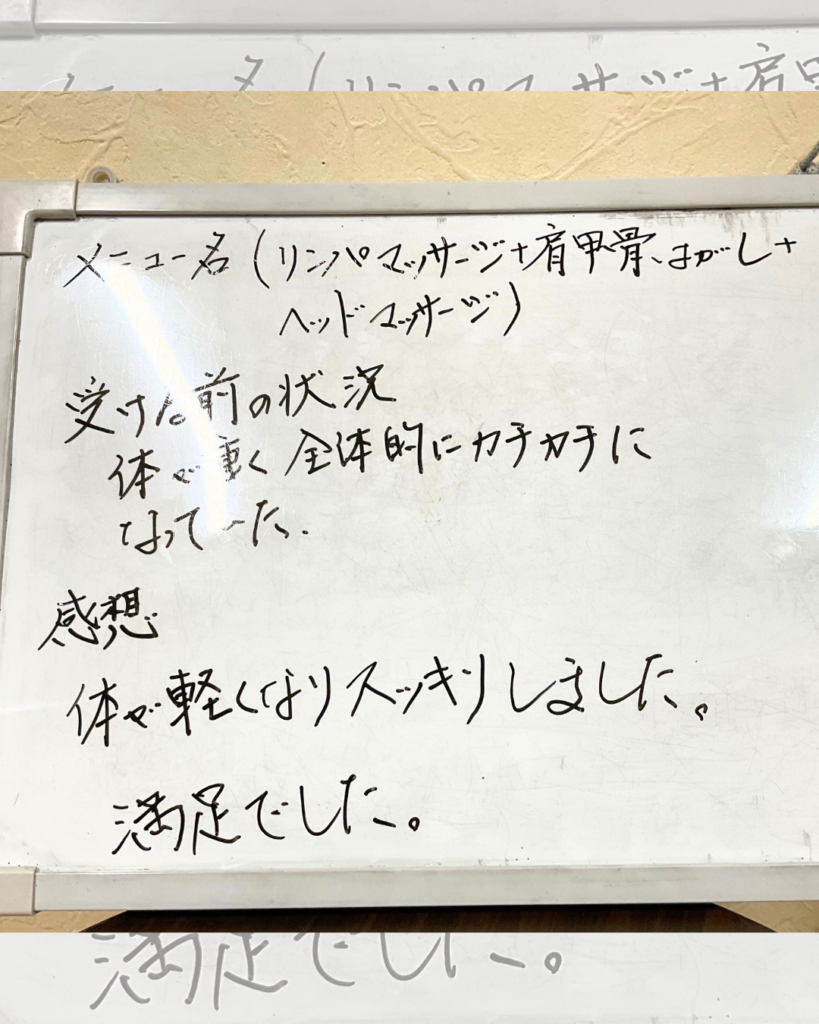 メニュー名(リンパマッサージ+肩甲骨はがし+
ヘッドマッサージ)
受ける前の状況
体が重く全体的にカチカチに
なっていた.
感想
体が軽くなりスッキリしました。
満足でした。